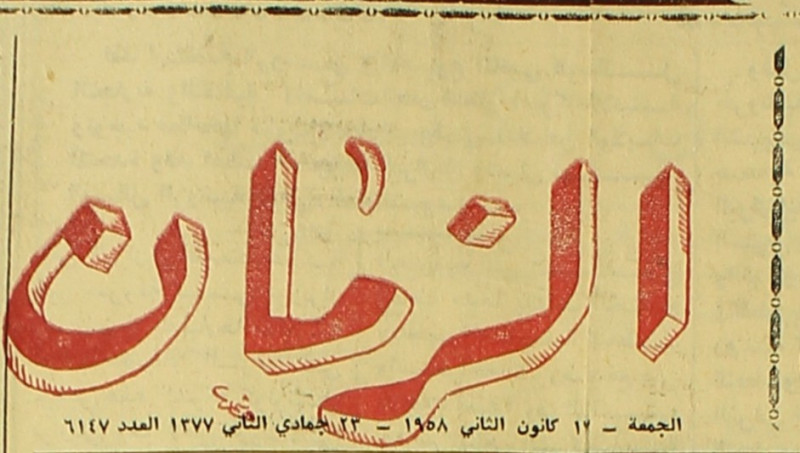 الزمان
الجمعة – ١٧ كانون الثاني ١٩٥٨ – ٢٣ جمادي الثاني ١٣٧٧ العدد ٦١٤٧